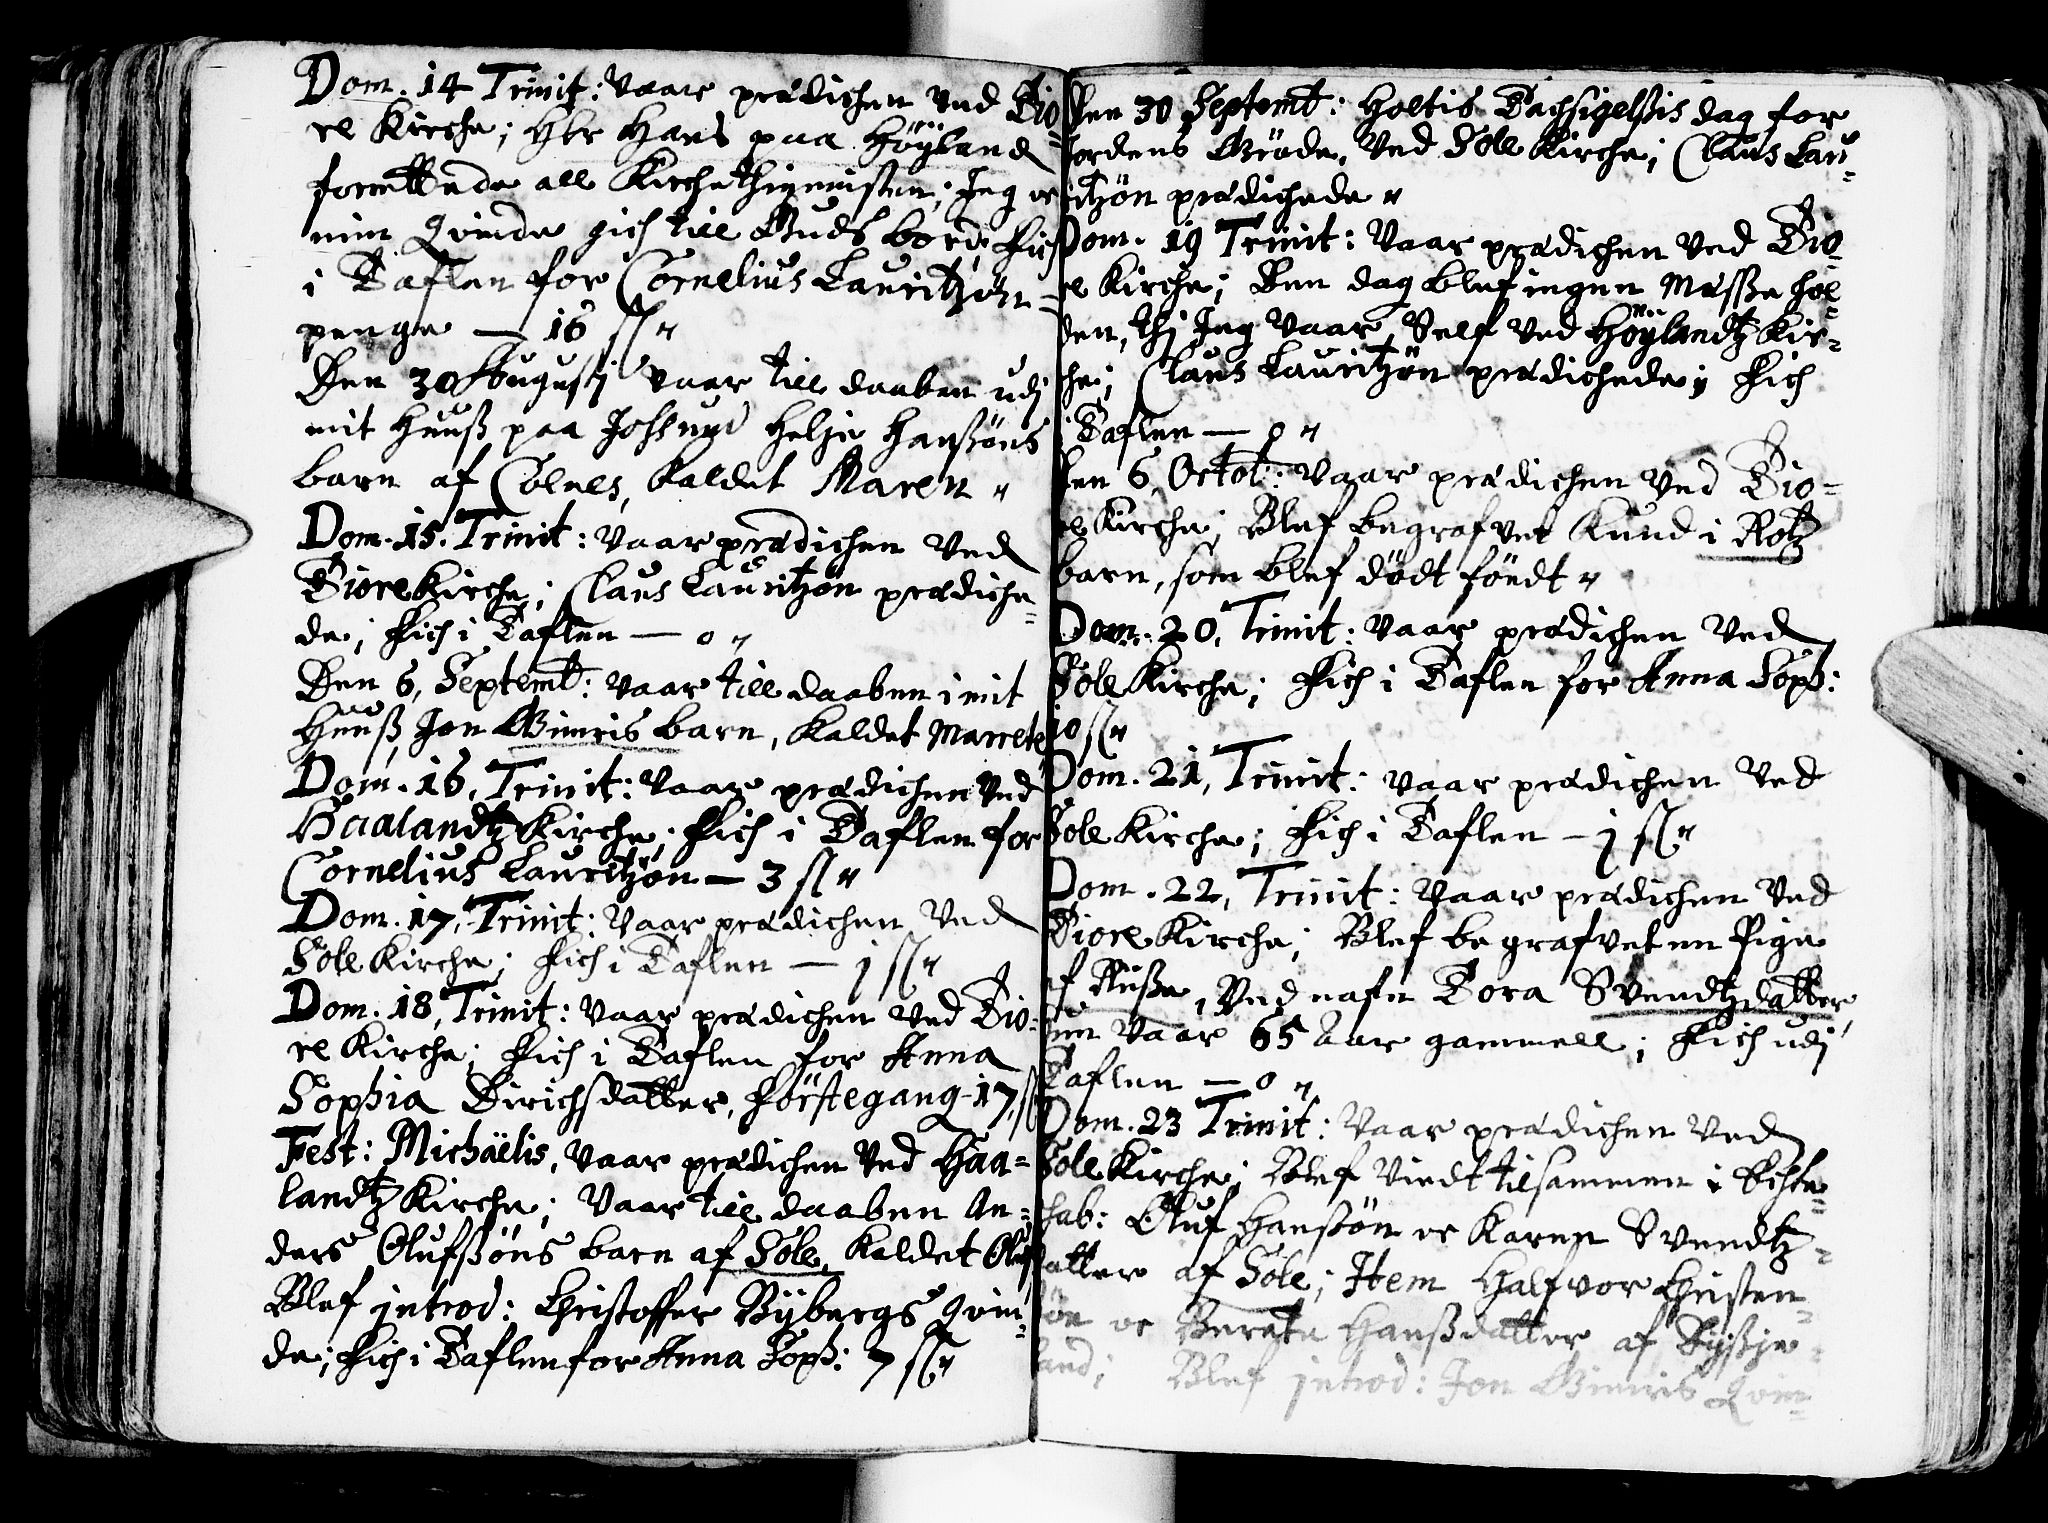 Dom. 14 Trinit: Vaar prædichen Ved Tio-
re Kirche; Hr Hans paa Höÿland
forrettede all Kirche thienisten; Jeg oc
min Qvinde gich till Guds bord; Fich
i Taflen for Cornelius Lauritzön
penge — 16 ſl"
Den 30 Augustj Vaar till daaben udj
mit Huuß paa Joßund Helje Hanßöns
barn af Colnes, kaldet Maren "
Dom. 15. Trinit: Vaar prædichen Ved
Tiore Kirche; Claus Lauritzön prædiche-
de; Fich i Taflen — 0 "
Den 6, Septemb: Vaar till daaben i mit
Huuß Jon Gimris barn, kaldet Marrete
Dom. 16, Trinit: Vaar prædichen Ved
Haalandtz Kirche; Fich i Taflen for
Cornelius Lauritzön — 3 ſl "
Dom. 17, Trinit: Vaar prædichen Ved
Sole Kirche; Fich i Taflen — j ſl "
Dom. 18, Trinit: Vaar prædichen Ved Tio-
re Kirche; Fich i Taflen for Anna
Sophia Dirichsdatter, förste gang - 17 ſl
Fest: Michäelis, Vaar prædichen Ved Haa-
landtz Kirche; Vaar till daaben An-
ders Olufßöns barn af Sole, kaldet Oluf
Blef introd: Christoffer Bÿbergs Qvin-
de; Fich i Taflen for Anna Soph: 7 ſl "
Den 30 Septemb: Holtis Tachsigelßis dag for
Jordens Gröde, Ved Sole Kirche; Claus Lau-
ritzön prædichede "
Dom. 19 Trinit: Vaar prædichen Ved Tio-
re Kirche; Den dag blef ingen Messe hol-
den, thj Jeg Vaar Self Ved Höÿlandtz Kir-
che; Claus Lauritzön prædichede; Fich
i Taflen — 0 "
Den 6, Octob: Vaar prædichen Ved Tio-
re Kirche; Blef begrafvet Knud i Rotz
barn, som blef dödt födt "
Dom. 20, Trinit: Vaar prædichen Ved
Sole Kirche; Fich i Taflen for Anna Soph:
10 ſl "
Dom. 21, Trinit: Vaar prædichen Ved
Sole Kirche; Fich i Taflen — j ſl "
Dom. 22, Trinit: Vaar prædichen Ved
Tiore Kirche; Blef begrafvet en Pige
af Ruße, Ved nafn Tora Svendtzdatter,
hun Vaar 65 Aar gammell; Fich udj
Taflen — 0 "
Dom. 23 Trinit: Vaar prædichen Ved
Sole Kirche; Blef Viedt tilsammen i Echte-
schab: Oluf Hanßön oc Karen Svendtz-
datter af Sole; Item Halfvor Christen-
ßön oc Berete Hanßdatter af
land; Blef introd: Jon Gimris Qvin-